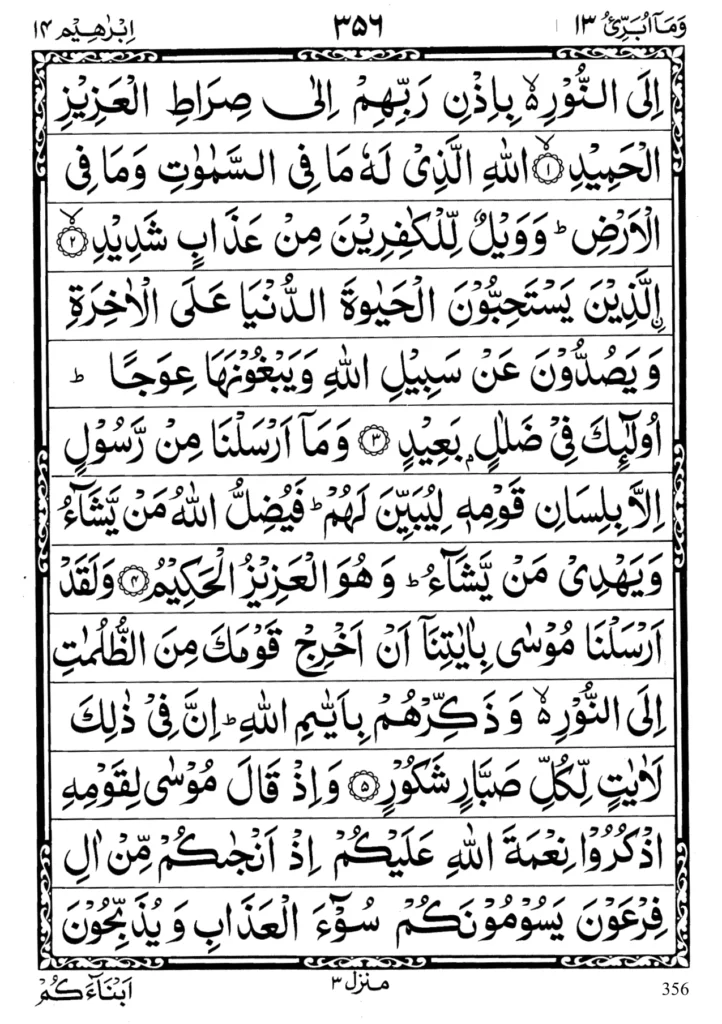 وَمَآ اُبَرِّئُ ١٣ ٣٥٦ اِبْرٰهِيْم ١٤
اِلَى النُّوْرِ ۙ بِاِذْنِ رَبِّهِمْ اِلٰى صِرَاطِ الْعَزِيْزِ
الْحَمِيْدِ ۙ﴿١﴾ اللّٰهِ الَّذِىْ لَهٗ مَا فِى السَّمٰوٰتِ وَمَا فِى
الْاَرْضِ ؕ وَوَيْلٌ لِّلْكٰفِرِيْنَ مِنْ عَذَابٍ شَدِيْدِ ۙ﴿٢﴾
اۨلَّذِيْنَ يَسْتَحِبُّوْنَ الْحَيٰوةَ الدُّنْيَا عَلَى الْاٰخِرَةِ
وَيَصُدُّوْنَ عَنْ سَبِيْلِ اللّٰهِ وَيَبْغُوْنَهَا عِوَجًا ؕ
اُولٰٓئِكَ فِىْ ضَلٰلٍۢ بَعِيْدٍ ﴿٣﴾ وَمَآ اَرْسَلْنَا مِنْ رَّسُوْلٍ
اِلَّا بِلِسَانِ قَوْمِهٖ لِيُبَيِّنَ لَهُمْ ؕ فَيُضِلُّ اللّٰهُ مَنْ يَّشَآءُ
وَيَهْدِىْ مَنْ يَّشَآءُ ؕ وَهُوَ الْعَزِيْزُ الْحَكِيْمُ ﴿٤﴾ وَلَقَدْ
اَرْسَلْنَا مُوْسٰى بِاٰيٰتِنَآ اَنْ اَخْرِجْ قَوْمَكَ مِنَ الظُّلُمٰتِ
اِلَى النُّوْرِ ۙ وَذَكِّرْهُمْ بِاَيّٰىمِ اللّٰهِ ؕ اِنَّ فِىْ ذٰلِكَ
لَاٰيٰتٍ لِّكُلِّ صَبَّارٍ شَكُوْرٍ ﴿٥﴾ وَاِذْ قَالَ مُوْسٰى لِقَوْمِهِ
اذْكُرُوْا نِعْمَةَ اللّٰهِ عَلَيْكُمْ اِذْ اَنْجٰىكُمْ مِّنْ اٰلِ
فِرْعَوْنَ يَسُوْمُوْنَكُمْ سُوْٓءَ الْعَذَابِ وَيُذَبِّحُوْنَ
اَبْنَآءَكُمْ منزل ٣ 356